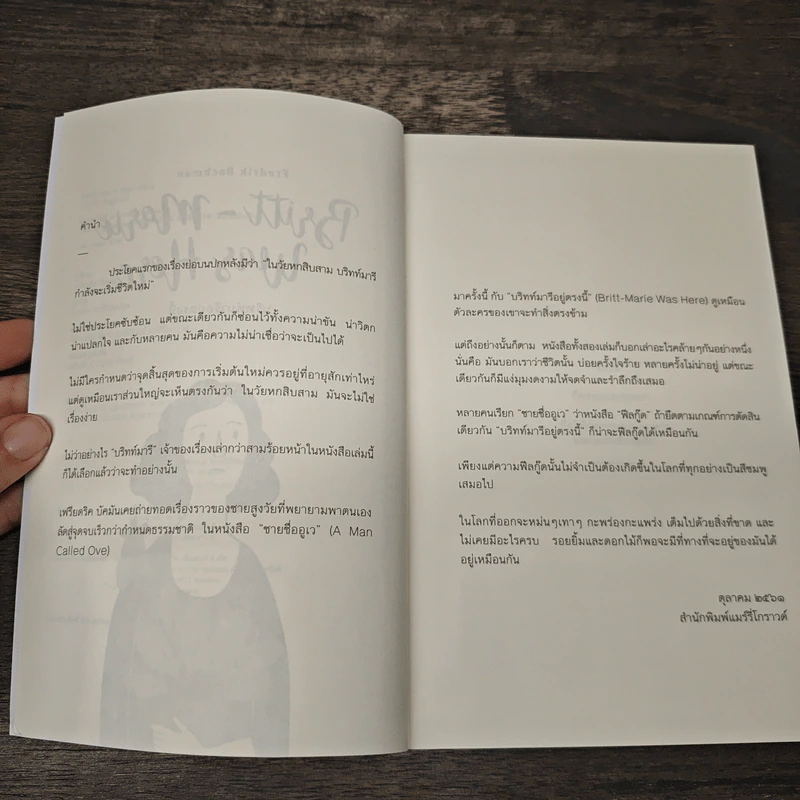 Fredrik Backman
Britt-Marie
Was Here
คำนำ
—
ประโยคแรกของเรื่องย่อบนปกหลังมีว่า "ในวัยหกสิบสาม บริทท์มารี
กำลังจะเริ่มชีวิตใหม่"
ไม่ใช่ประโยคซับซ้อน แต่ขณะเดียวกันก็ซ่อนไว้ทั้งความน่าขัน น่าวิตก
น่าแปลกใจ และกับหลายคน มันคือความไม่น่าเชื่อว่าจะเป็นไปได้
ไม่มีใครกำหนดว่าจุดสิ้นสุดของการเริ่มต้นใหม่ควรอยู่ที่อายุสักเท่าไหร่
แต่ดูเหมือนเราส่วนใหญ่จะเห็นตรงกันว่า ในวัยหกสิบสาม มันจะไม่ใช่
เรื่องง่าย
ไม่ว่าอย่างไร "บริทท์มารี" เจ้าของเรื่องเล่ากว่าสามร้อยหน้าในหนังสือเล่มนี้
ก็ได้เลือกแล้วว่าจะทำอย่างนั้น
เฟรียดริค บัคมันเคยถ่ายทอดเรื่องราวของชายสูงวัยที่พยายามพาตนเอง
ลัดสู่จุดจบเร็วกว่ากำหนดธรรมชาติ ในหนังสือ "ชายชื่ออูเว" (A Man
Called Ove)
มาครั้งนี้ กับ "บริทท์มารีอยู่ตรงนี้" (Britt-Marie Was Here) ดูเหมือน
ตัวละครของเขาจะทำสิ่งตรงข้าม
แต่ถึงอย่างนั้นก็ตาม หนังสือทั้งสองเล่มก็บอกเล่าอะไรคล้ายๆกันอย่างหนึ่ง
นั่นคือ มันบอกเราว่าชีวิตนั้น บ่อยครั้งใจร้าย หลายครั้งไม่น่าอยู่ แต่ขณะ
เดียวกันก็มีแง่มุมงดงามให้จดจำและรำลึกถึงเสมอ
หลายคนเรียก "ชายชื่ออูเว" ว่าหนังสือ "ฟีลกู๊ด" ถ้ายึดตามเกณฑ์การตัดสิน
เดียวกัน "บริทท์มารีอยู่ตรงนี้" ก็น่าจะฟีลกู๊ดได้เหมือนกัน
เพียงแต่ความฟีลกู๊ดนั้นไม่จำเป็นต้องเกิดขึ้นในโลกที่ทุกอย่างเป็นสีชมพู
เสมอไป
ในโลกที่ออกจะหม่นๆเทาๆ กะพร่องกะแพร่ง เต็มไปด้วยสิ่งที่ขาด และ
ไม่เคยมีอะไรครบ รอยยิ้มและดอกไม้ก็พอจะมีที่ทางที่จะอยู่ของมันได้
อยู่เหมือนกัน
ตุลาคม ๒๕๖๑
สำนักพิมพ์แมร์รี่โกราวด์